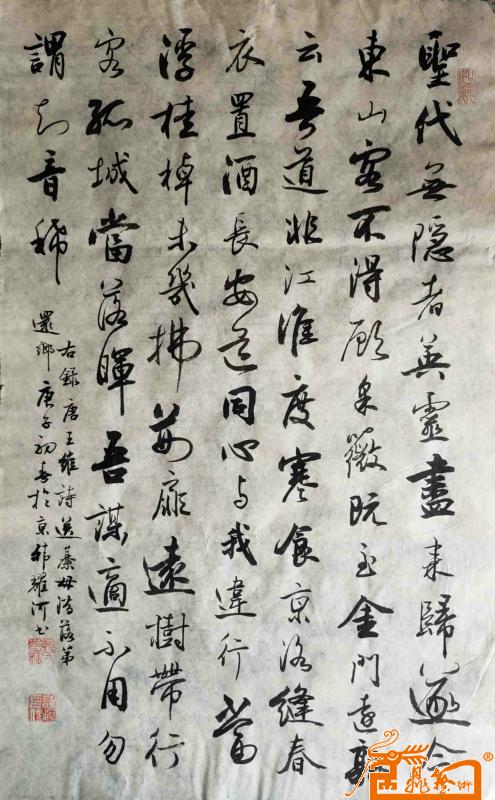 聖代無隱者英靈盡來歸遂令
東山客不得顧采薇既至金門遠孰
云吾道非江淮度寒食京洛縫春
衣置酒長安道同心与我違行當
浮桂棹未幾拂荊扉遠樹帶行
客孤城當落暉吾謀適不用勿
謂知音稀
右錄唐王維詩送綦毋潛落第
還鄉庚子初春於京韓耀河書